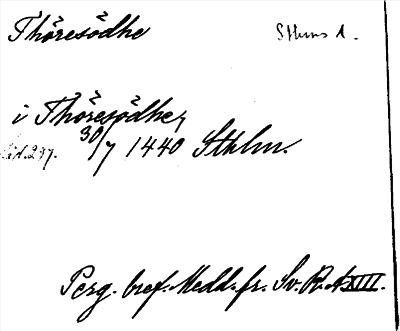 Thöresödhe
Sthms d.
i Thöresödhe,
30/7 1440 Sthlm.
Perg. bref. Medd. fr. Sv. R. A XIII.